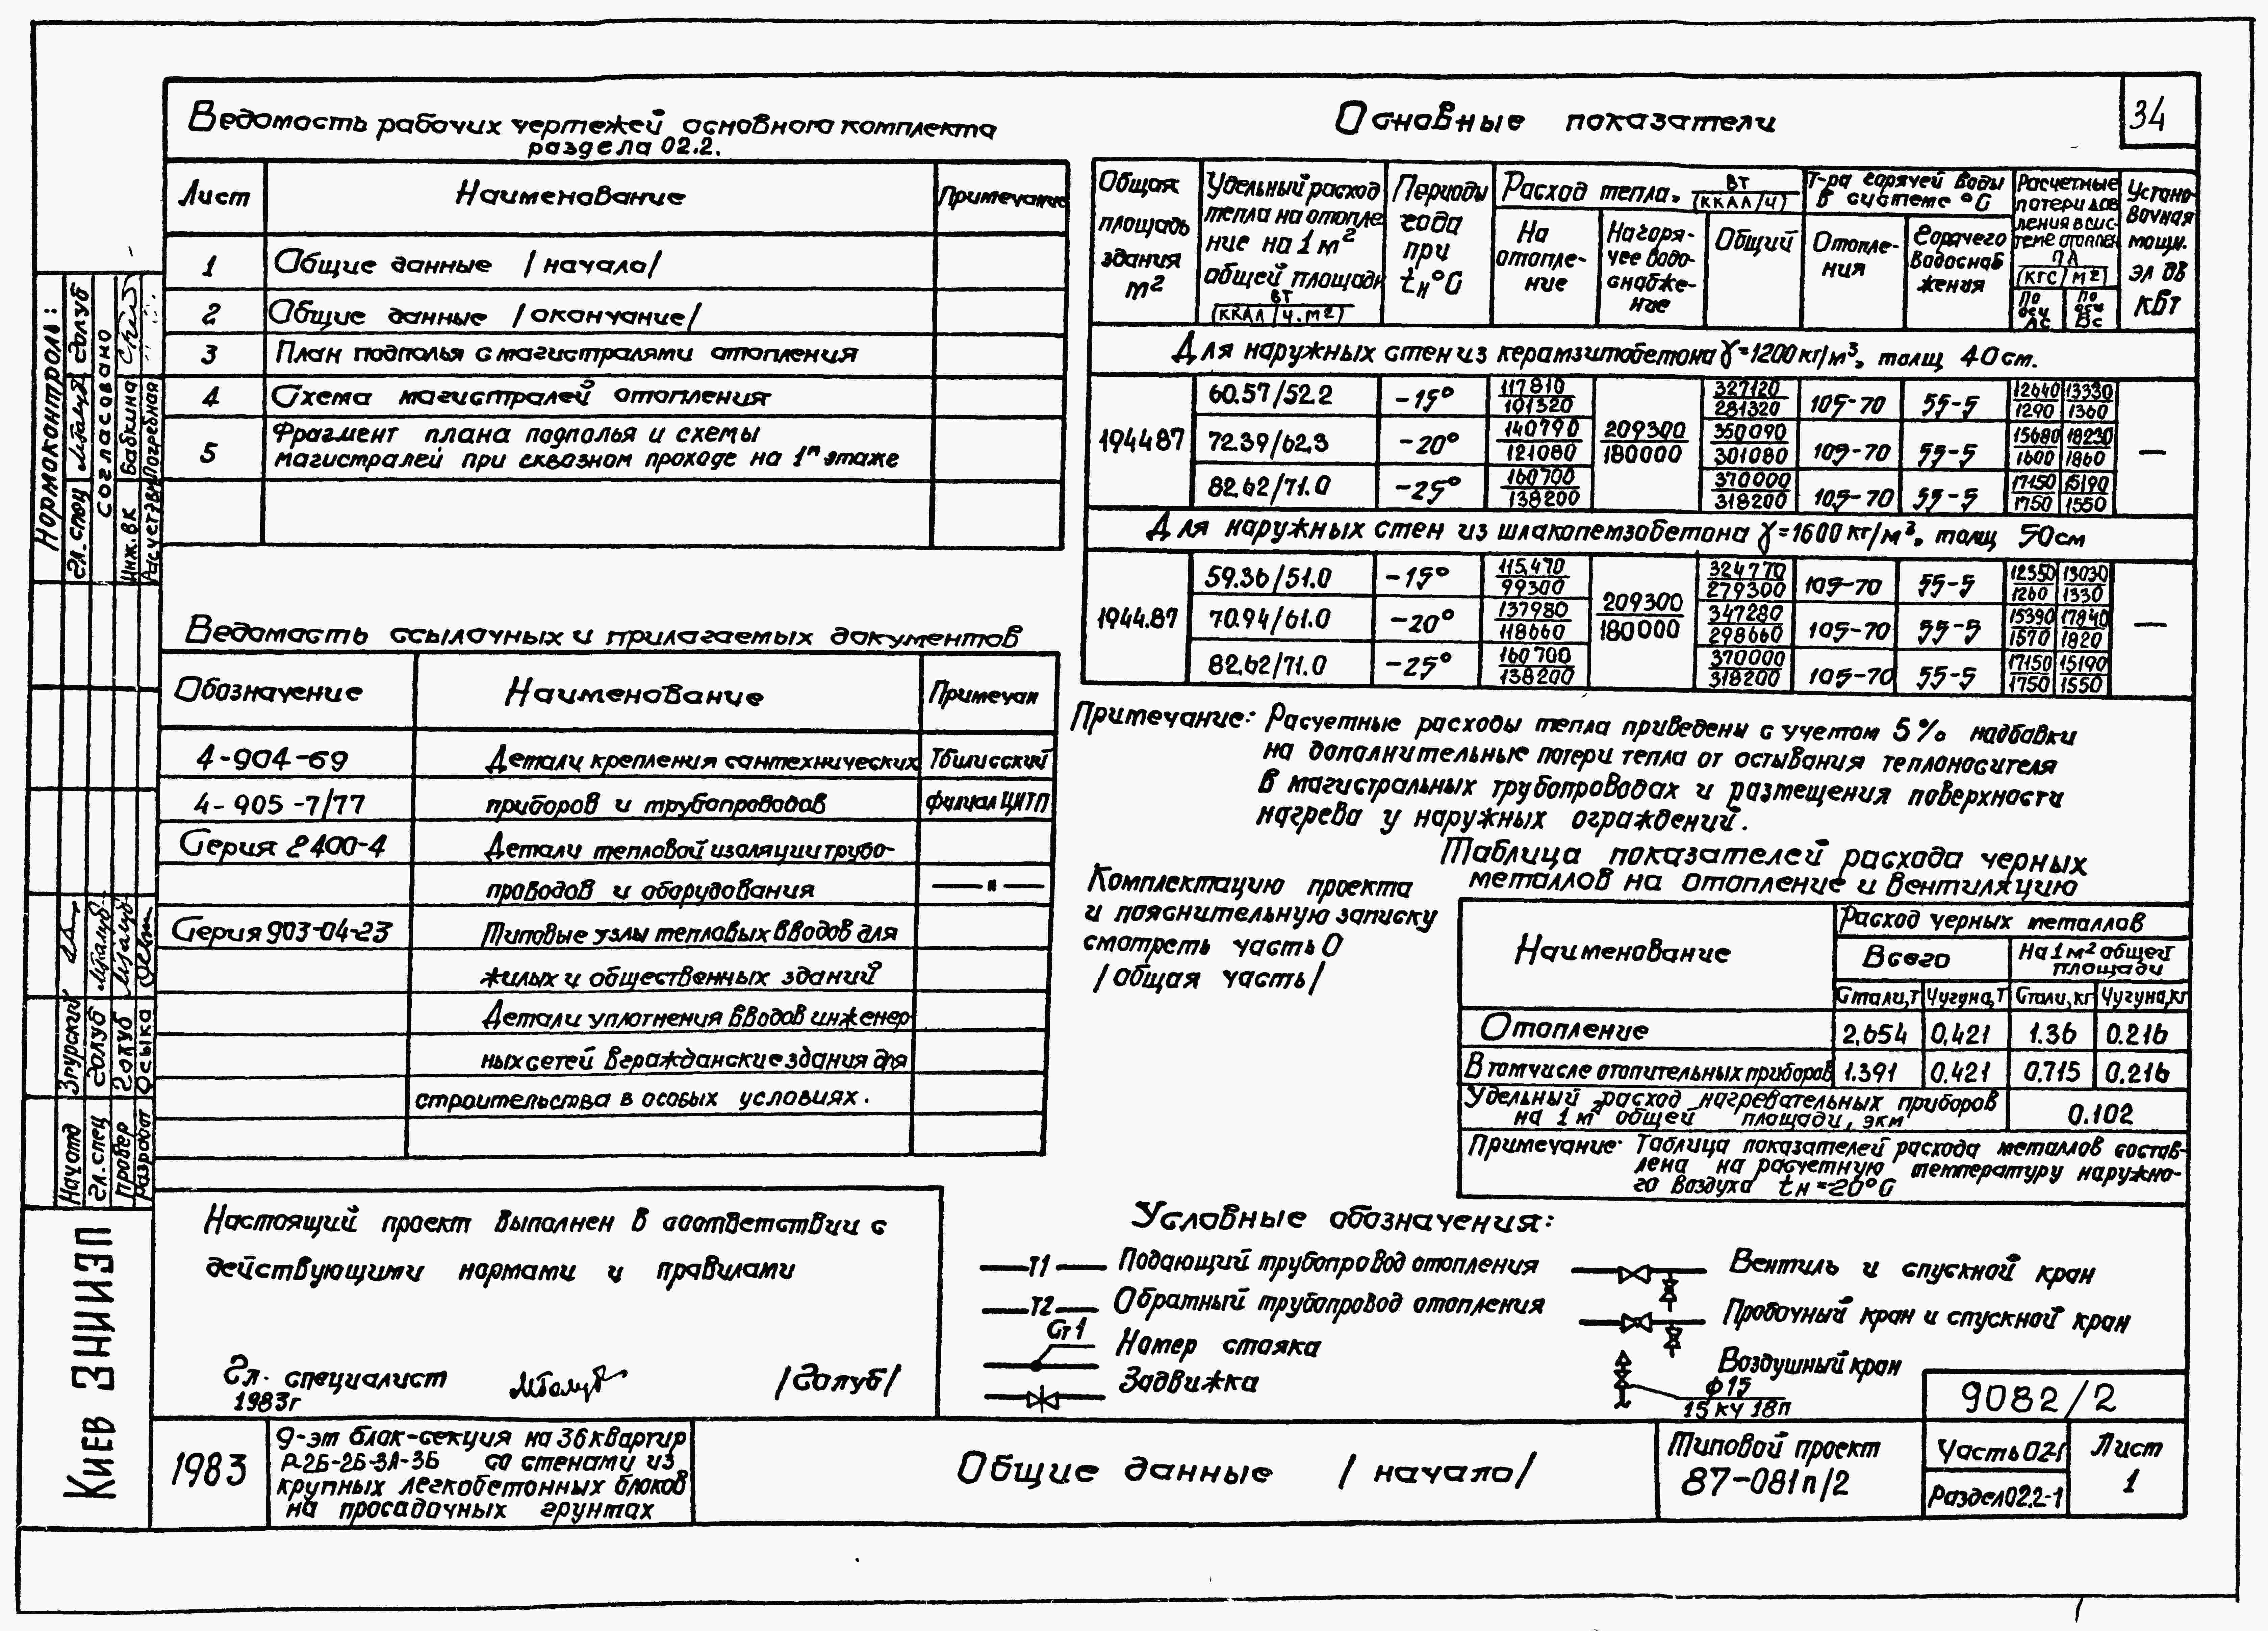 34
Ведомость рабочих чертежей основного комплекта
раздела 02.2.
Лист Наименование Примечание
1 Общие данные /начало/
2 Общие данные /окончание/
3 План подполья с магистралями отопления
4 Схема магистралей отопления
5 Фрагмент плана подполья и схемы
магистралей при сквозном проходе на 1м этаже
Ведомость ссылочных и прилагаемых документов
Обозначение Наименование Примечан
4-904-69 Детали крепления сантехнических Тбилисский
4-905-7/77 приборов и трубопроводов филиал ЦИТП
Серия 2400-4 Детали тепловой изоляции трубо-
проводов и оборудования — " —
Серия 903-04-23 Типовые узлы тепловых вводов для
жилых и общественных зданий
Детали уплотнения вводов инженер
ных сетей в гражданские здания для
строительства в особых условиях.
Настоящий проект выполнен в соответствии с
действующими нормами и правилами
Гл. специалист /Голуб/
1983г
Основные показатели
Общая площадь здания м²
Удельный расход тепла на отопле ние на 1 м² общей площади Вт (ккал/ч.м²)
Периоды года при tн °С
Расход тепла. Вт (ккал/ч)
На отопле- ние
На горя- чее водо- снабже- ние
Общий
Т-ра горячей воды в системе °С
Отопле- ния
Горячего водоснаб жения
Расчетные потери дав ления в сис- теме отоплен ПА (кгс/м²)
По оси Ас
По оси Вс
Устано- вочная мощн. эл дв кВт
Для наружных стен из керамзитобетона γ=1200 кг/м³, толщ 40 см.
1944.87 60.57/52.2 -15° 117810/101320 209300/180000 327120/281320 105-70 55-5 12640/1290 13330/1360 —
72.39/62.3 -20° 140790/121080 350090/301080 105-70 55-5 15680/1600 18230/1860
82.62/71.0 -25° 160700/138200 370000/318200 105-70 55-5 17150/1750 15190/1550
Для наружных стен из шлакопемзобетона γ=1600 кг/м³, толщ 50 см
1944.87 59.36/51.0 -15° 115.470/99300 209300/180000 324770/279300 105-70 55-5 12350/1260 13030/1330 —
70.94/61.0 -20° 137980/118660 347280/298660 105-70 55-5 15390/1570 17840/1820
82.62/71.0 -25° 160700/138200 370000/318200 105-70 55-5 17150/1750 15190/1550
Примечание: Расчетные расходы тепла приведены с учетом 5% надбавки
на дополнительные потери тепла от остывания теплоносителя
в магистральных трубопроводах и размещения поверхности
нагрева у наружных ограждений.
Комплектацию проекта
и пояснительную записку
смотреть часть 0
/общая часть/
Таблица показателей расхода черных
металлов на отопление и вентиляцию
Наименование Расход черных металлов
Всего На 1 м² общей площади
Стали, т Чугуна, т Стали, кг Чугуна, кг
Отопление 2,654 0,421 1.36 0.216
В том числе отопительных приборов 1.391 0.421 0.715 0.216
Удельный расход нагревательных приборов
на 1 м² общей площади, экм 0.102
Примечание: Таблица показателей расхода металлов состав-
лена на расчетную температуру наружно-
го воздуха tн=-20°С
Условные обозначения:
Т1 Подающий трубопровод отопления
Т2 Обратный трубопровод отопления
Ст 1 Номер стояка
Задвижка
Вентиль и спускной кран
Пробочный кран и спускной кран
Воздушный кран
ф15
15 кч 18п
9082/2
1983
9-эт блок-секция на 36 квартир
Р-2Б-2Б-3А-3Б со стенами из
крупных легкобетонных блоков
на просадочных грунтах
Общие данные /начало/
Типовой проект
87-081п/2
Часть 02-1
Раздел 02.2-1
Лист
1
Нормоконтроль:
Гл. спец Голуб
Согласовано
Инж. ВК Бабкина
Погребная
Нач отд Згурский
Гл. спец Голуб
Провер Голуб
Разработ Осыка
Киев ЗНИИЭП